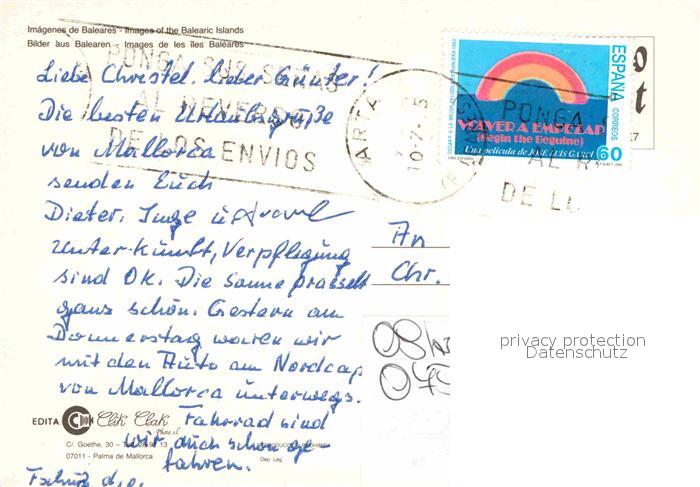 Imágenes de Baleares - Images of the Balearic Islands
Bilder aus Balearen - Images de les îles Baleares
Liebe Christel. lieber Günter!
Die besten Urlaubsgrüße
von Mallorca
senden Euch
Dieter, Inge u.
Unterkunft, Verpflegung
sind OK. Die Sonne prasselt
ganz schön. Gestern am
Donnerstag waren wir
mit den Auto am Nordcap
von Mallorca unterwegs.
Fahrrad sind
wir auch schon ge-
fahren.
Tschüß
EDITA CDM Clik Clak
C/. Goethe, 30 - 13
07011 - Palma de Mallorca
Dep. Leg.
PONGA SUS SEÑAS
AL REVERSO
DE LOS ENVIOS
ARTA
10-7-5
ESPAÑA
CORREOS
VOLVER A EMPEZAR
(Begin the Beguine)
Una película de JOSE LUIS GARCI
60
PONGA S
AL R
DE L
An
Chr.
privacy protection
Datenschutz